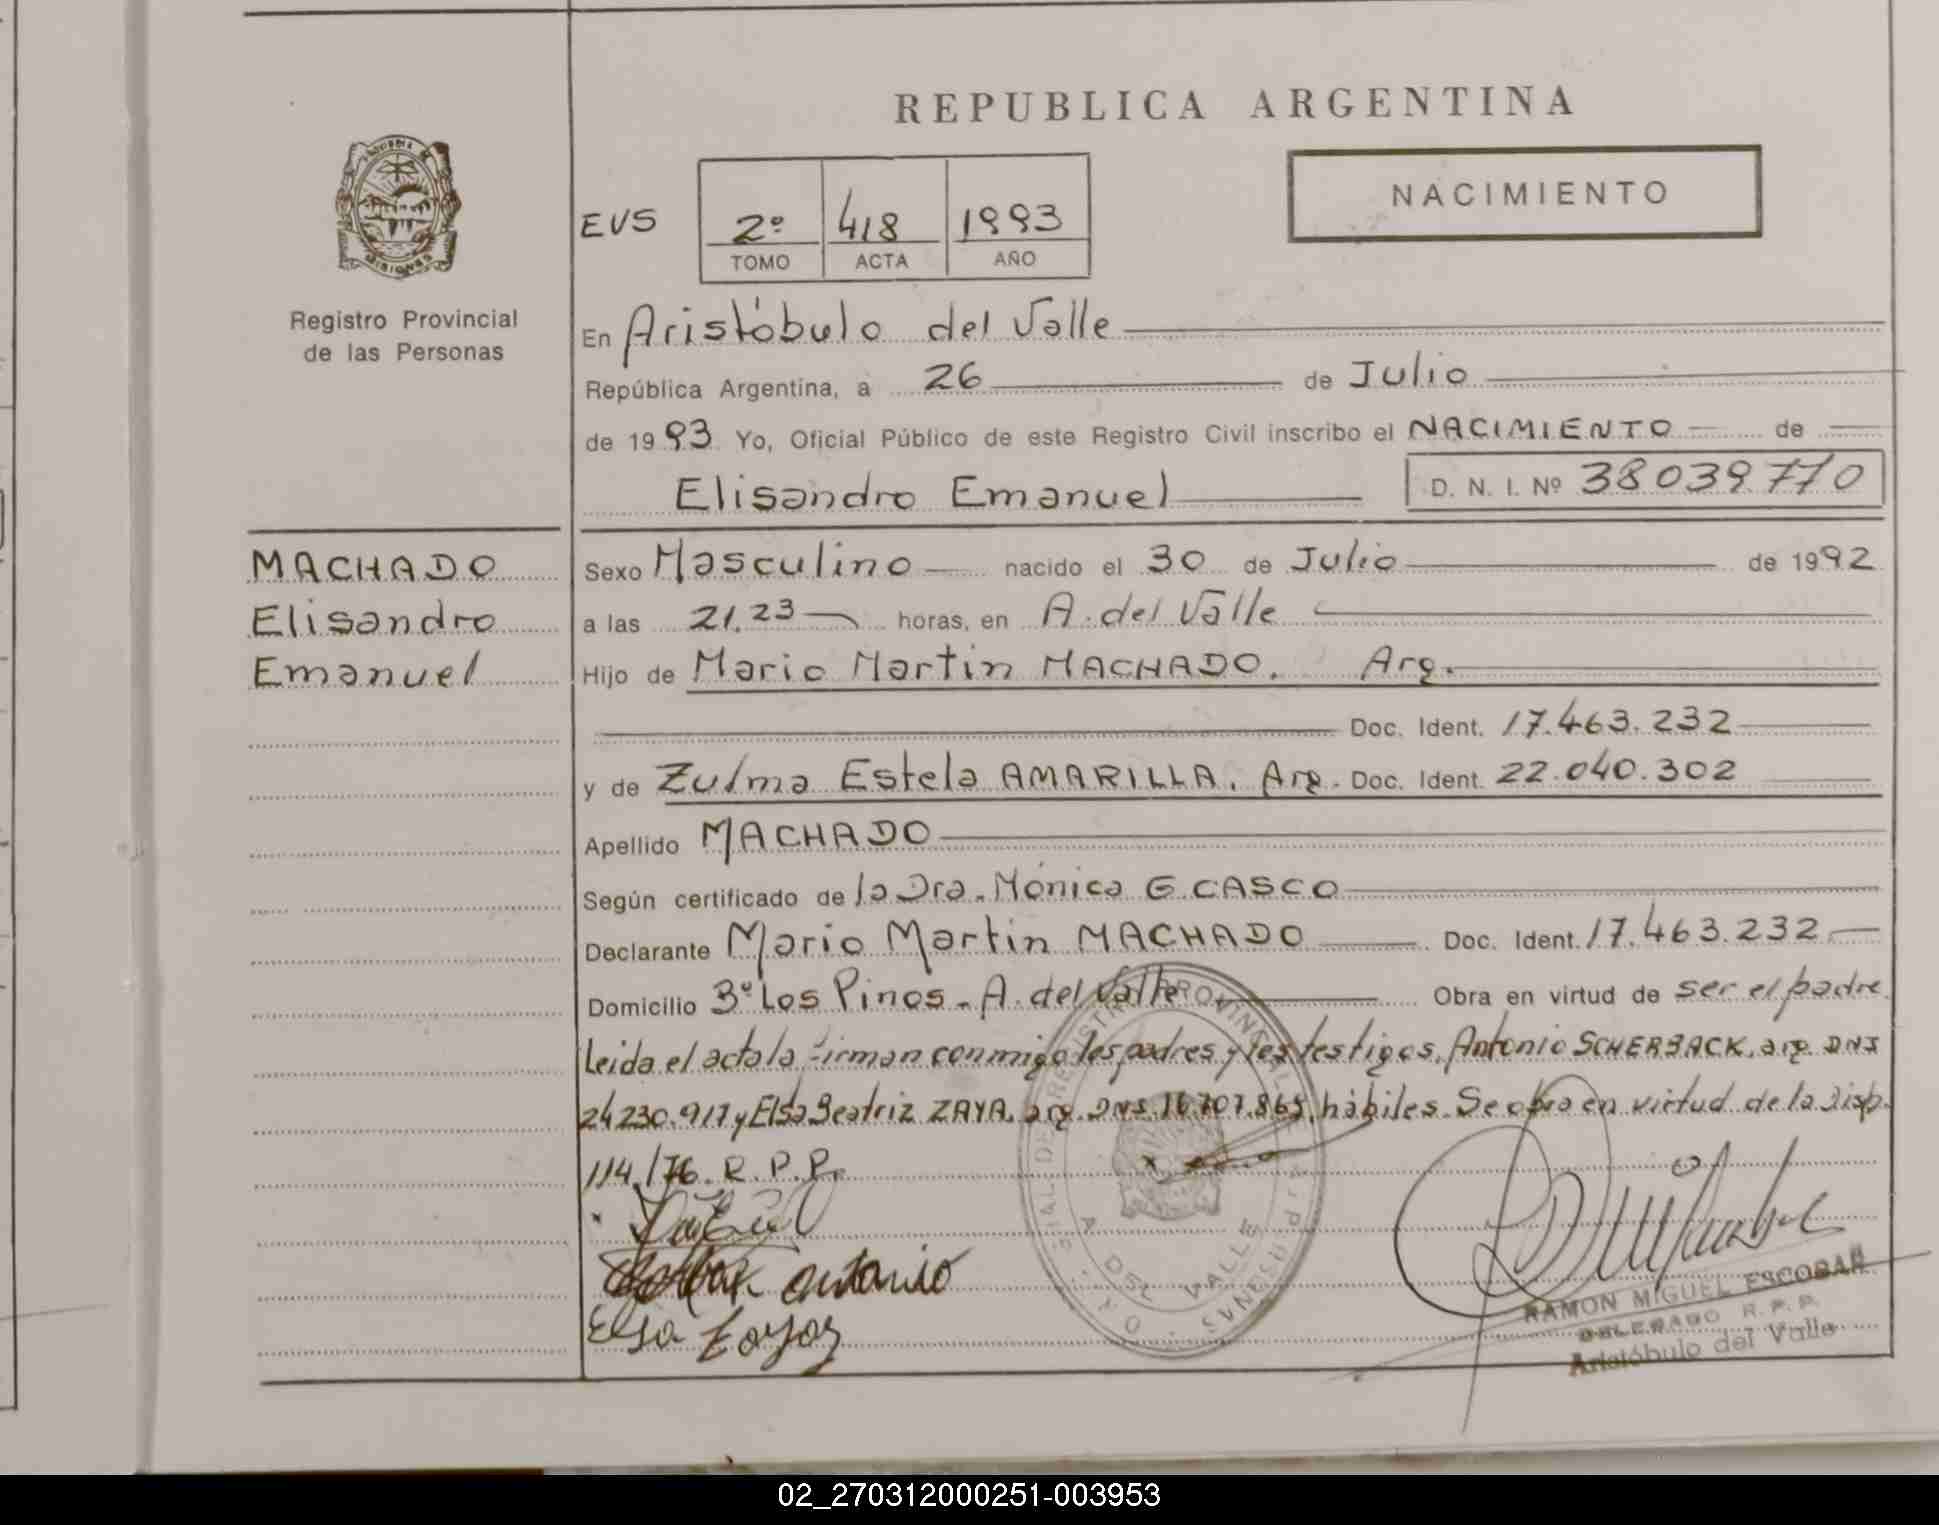 REPUBLICA ARGENTINA
NACIMIENTO
EVS
2º 418 1993
TOMO ACTA AÑO
PROVINCIA DE
MISIONES
Registro Provincial
de las Personas
En Aristóbulo del Valle
República Argentina, a 26 de Julio
de 1993 Yo, Oficial Público de este Registro Civil inscribo el NACIMIENTO de
Elisandro Emanuel D. N. I. Nº 38039770
MACHADO
Elisandro
Emanuel
Sexo Masculino nacido el 30 de Julio de 1992
a las 21.23 horas, en A. del Valle
Hijo de Mario Martin MACHADO. Arg.
Doc. Ident. 17.463.232
y de Zulma Estela AMARILLA. Arg. Doc. Ident. 22.040.302
Apellido MACHADO
Según certificado de la Dra. Mónica G. CASCO
Declarante Mario Martin MACHADO Doc. Ident. 17.463.232
Domicilio Bº Los Pinos. A. del Valle Obra en virtud de ser el padre
Leida el acta la firman conmigo los padres y los testigos, Antonio SCHERBACK, arg. DNI
24.230.917 y Elsa Beatriz ZAYA. arg. DNI. 16.707.865, hábiles. Se obra en virtud de la Disp.
114/76. R.P.P.
antonio
Elsa
RAMON MIGUEL ESCOBAR
DELEGADO R.P.P.
Aristóbulo del Valle
02_270312000251-003953